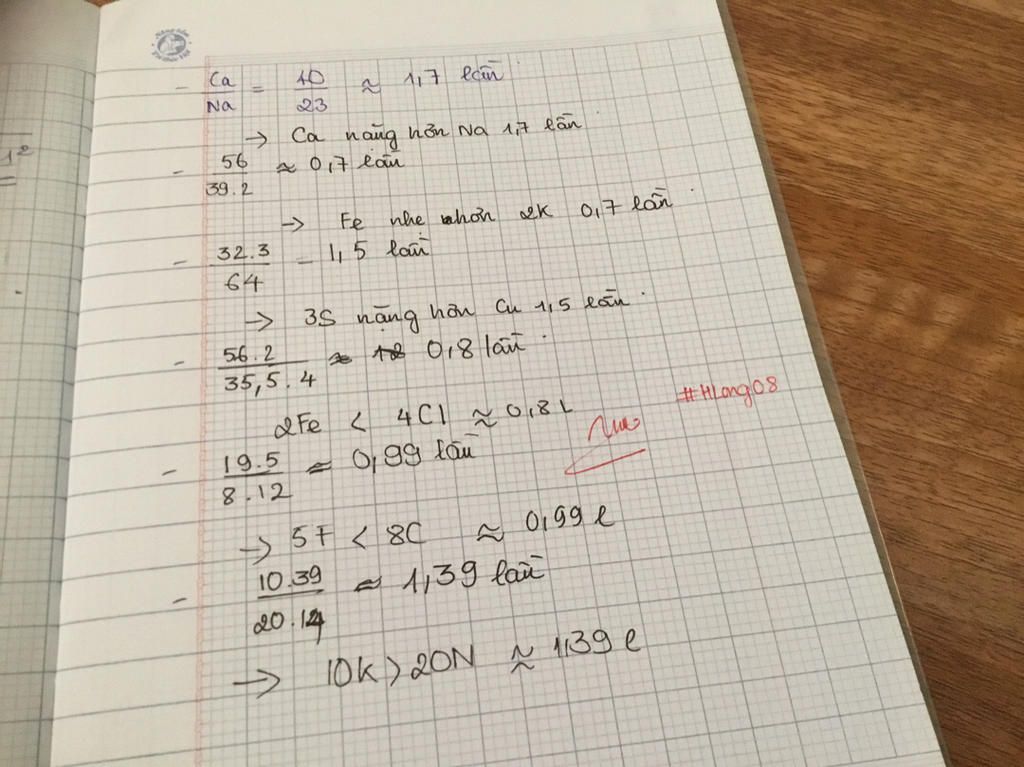 - Ca/Na = 40/23 ≈ 1,7 lần
→ Ca nặng hơn Na 1,7 lần.
- 56/39.2 ≈ 0,7 lần
→ Fe nhẹ hơn 2K 0,7 lần.
- 32.3/64 = 1,5 lần
→ 3S nặng hơn Cu 1,5 lần.
- 56.2/35,5.4 ≈ 0,8 lần.
2Fe < 4Cl ≈ 0,8 L
#HLong08
- 19.5/8.12 ≈ 0,99 lần
→ 5F < 8C ≈ 0,99 l
- 10.39/20.14 ≈ 1,39 lần
→ 10K > 20N ≈ 1,39 l